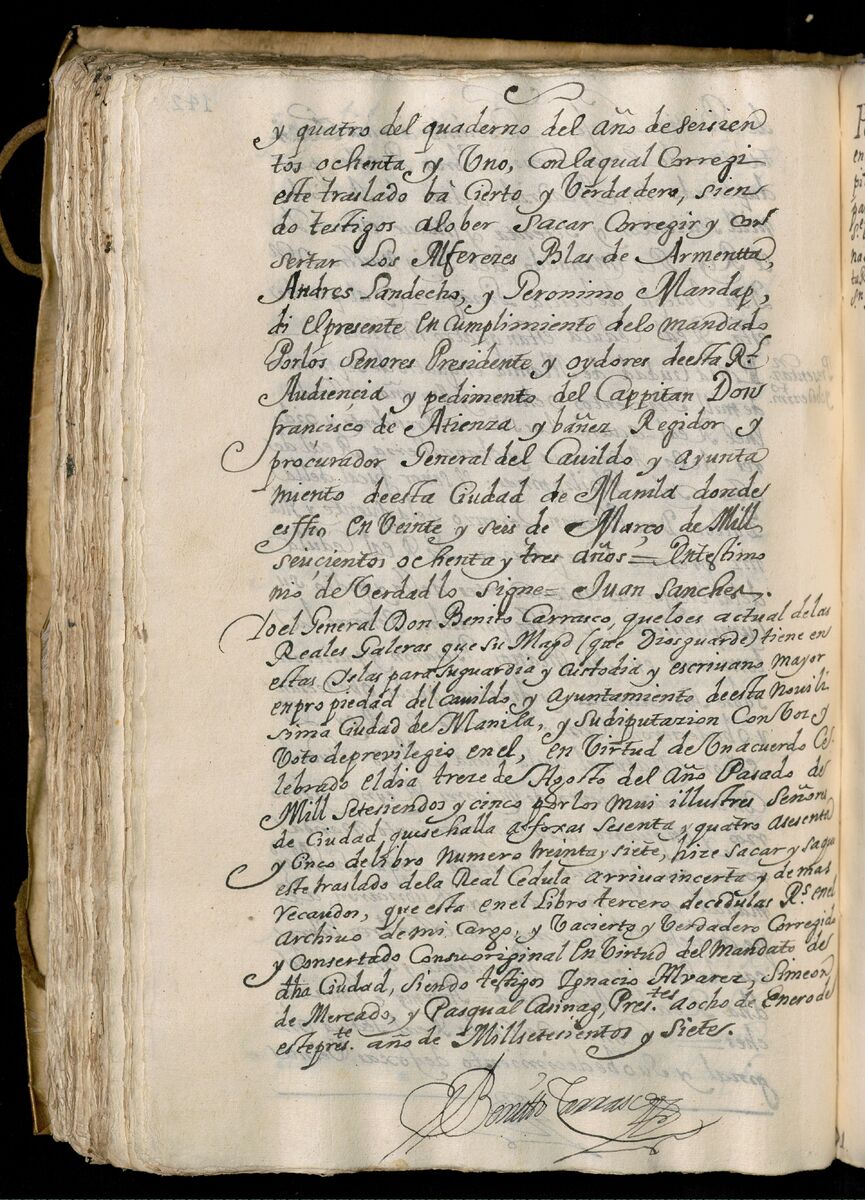 y quatro del quaderno del año de seisien
tos ochenta y Uno, Con laqual Corregi
este traslado bà Cierto y Verdadero, sien
do testigos alober Sacar Corregir y con
sertar Los Alferezes Blas de Armentta,
Andres Landecho, y Geronimo Mandap,
di el presente en Cumplimiento delo mandado
Porlos Señores Presidente y oydores deesta Rl
Audiencia y pedimento del Cappitan Don
francisco de Atienza y bañez Regidor y
procurador General del Cauildo y ayunta
miento deesta Ciudad de Manila donde
es ffho en Veinte y seis de Março de Mill
seiscientos ochenta y tres años = Entestimo
nio de Verdad lo signe = Juan Sanches.
Yo el General Don Benito Carrasco, que lo es actual de las
Reales Galeras que su Magd (que Dios guarde) tiene en
estas Yslas para su guardia y Custodia y escriuano mayor
en propiedad del Cauildo y Ayuntamiento deesta Nouili
sima Ciudad de Manila, y su diputazion Con Voz y
Voto de preuilegio en el, en Virtud de Un acuerdo Ce
lebrado el dia treze de Agosto del Año Pasado de
Mill Setesiendos y cinco por los mui illustres Señores
de Ciudad que se halla afoxas Sesenta y quatro asesenta
y Cinco de libro numero treinta y siete, hize sacar y saque
este traslado dela Real Cedula arriua incerta y demas
recaudos, que esta en el Libro tercero de cedulas Rs en el
Archiuo de mi Cargo, y Vacierto y Verdadero Corregido
y Consertado Consuoriginal en Virtud del Mandato de
dha Ciudad, siendo testigos Ignacio Alvarez, Simeon
de Mercado, y Pasqual Casinag, Prestes. aocho de Enero de
este preste. año de Mill setesientos y siete.
Benitto Carrasco